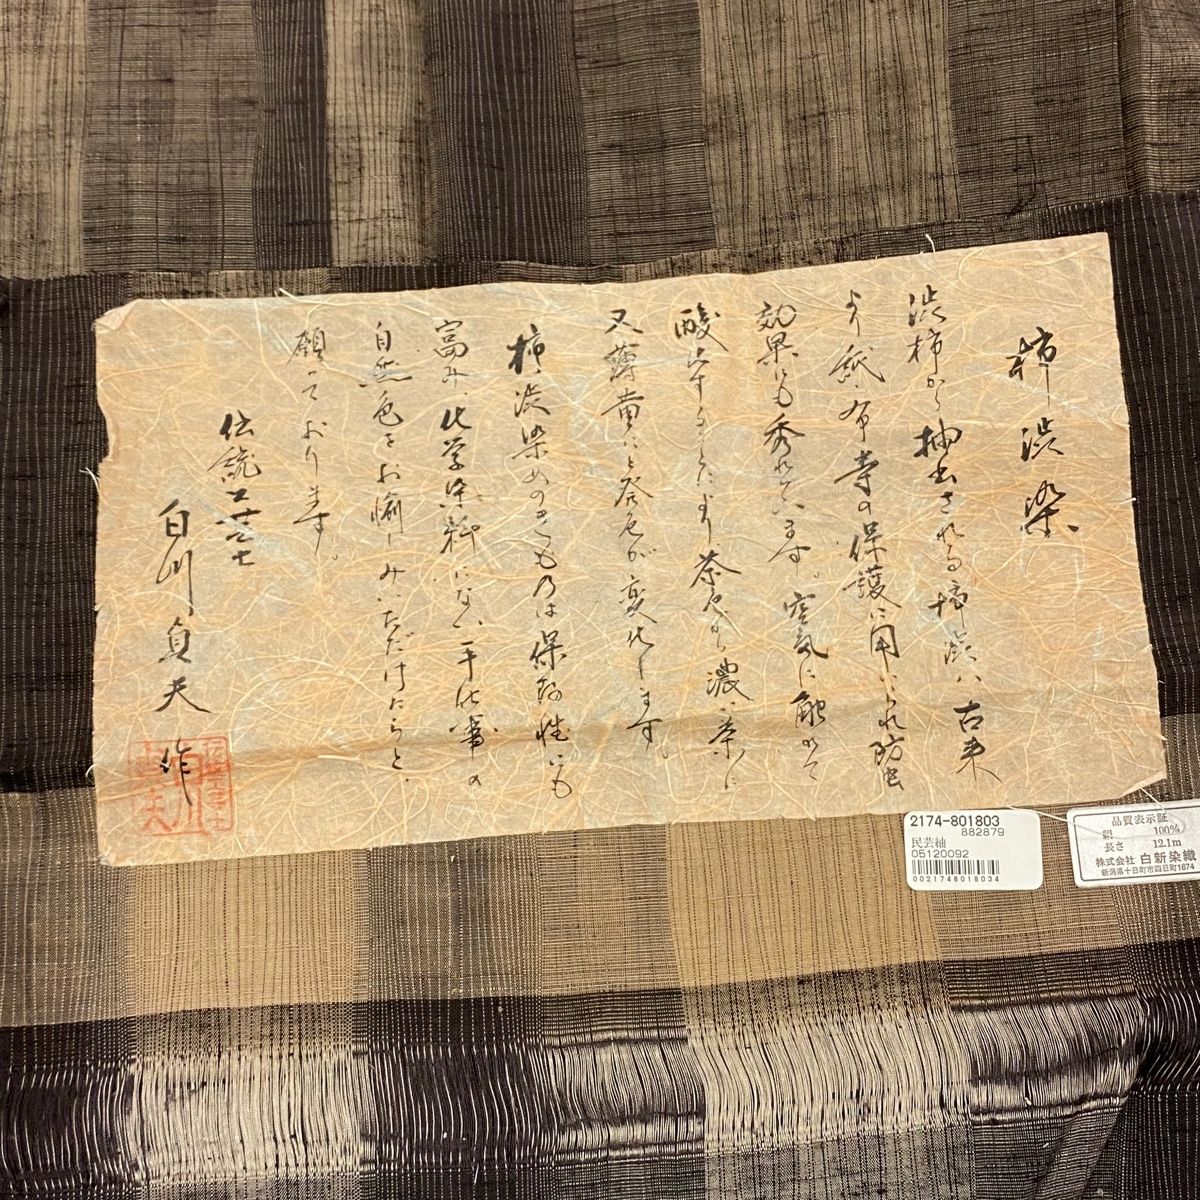 柿渋染
渋柿から抽出される柿渋は古来
より紙、布等の保護に用いられ防虫
効果にも秀れています。空気に触れて
酸化することにより茶色から濃い茶に
又薄黄にと発色が変化します。
柿渋染めのきものは保温性にも
富み、化学染料にない草木の
自然色をお愉しみいただけたらと、
願っております。
伝統工芸士
白川貞夫 作
2174-801803
882879
民芸紬
05120092
0021748018034
品質表示証
絹 100%
長さ 12.1m
株式会社 白新染織
新潟県十日町市四日町1674